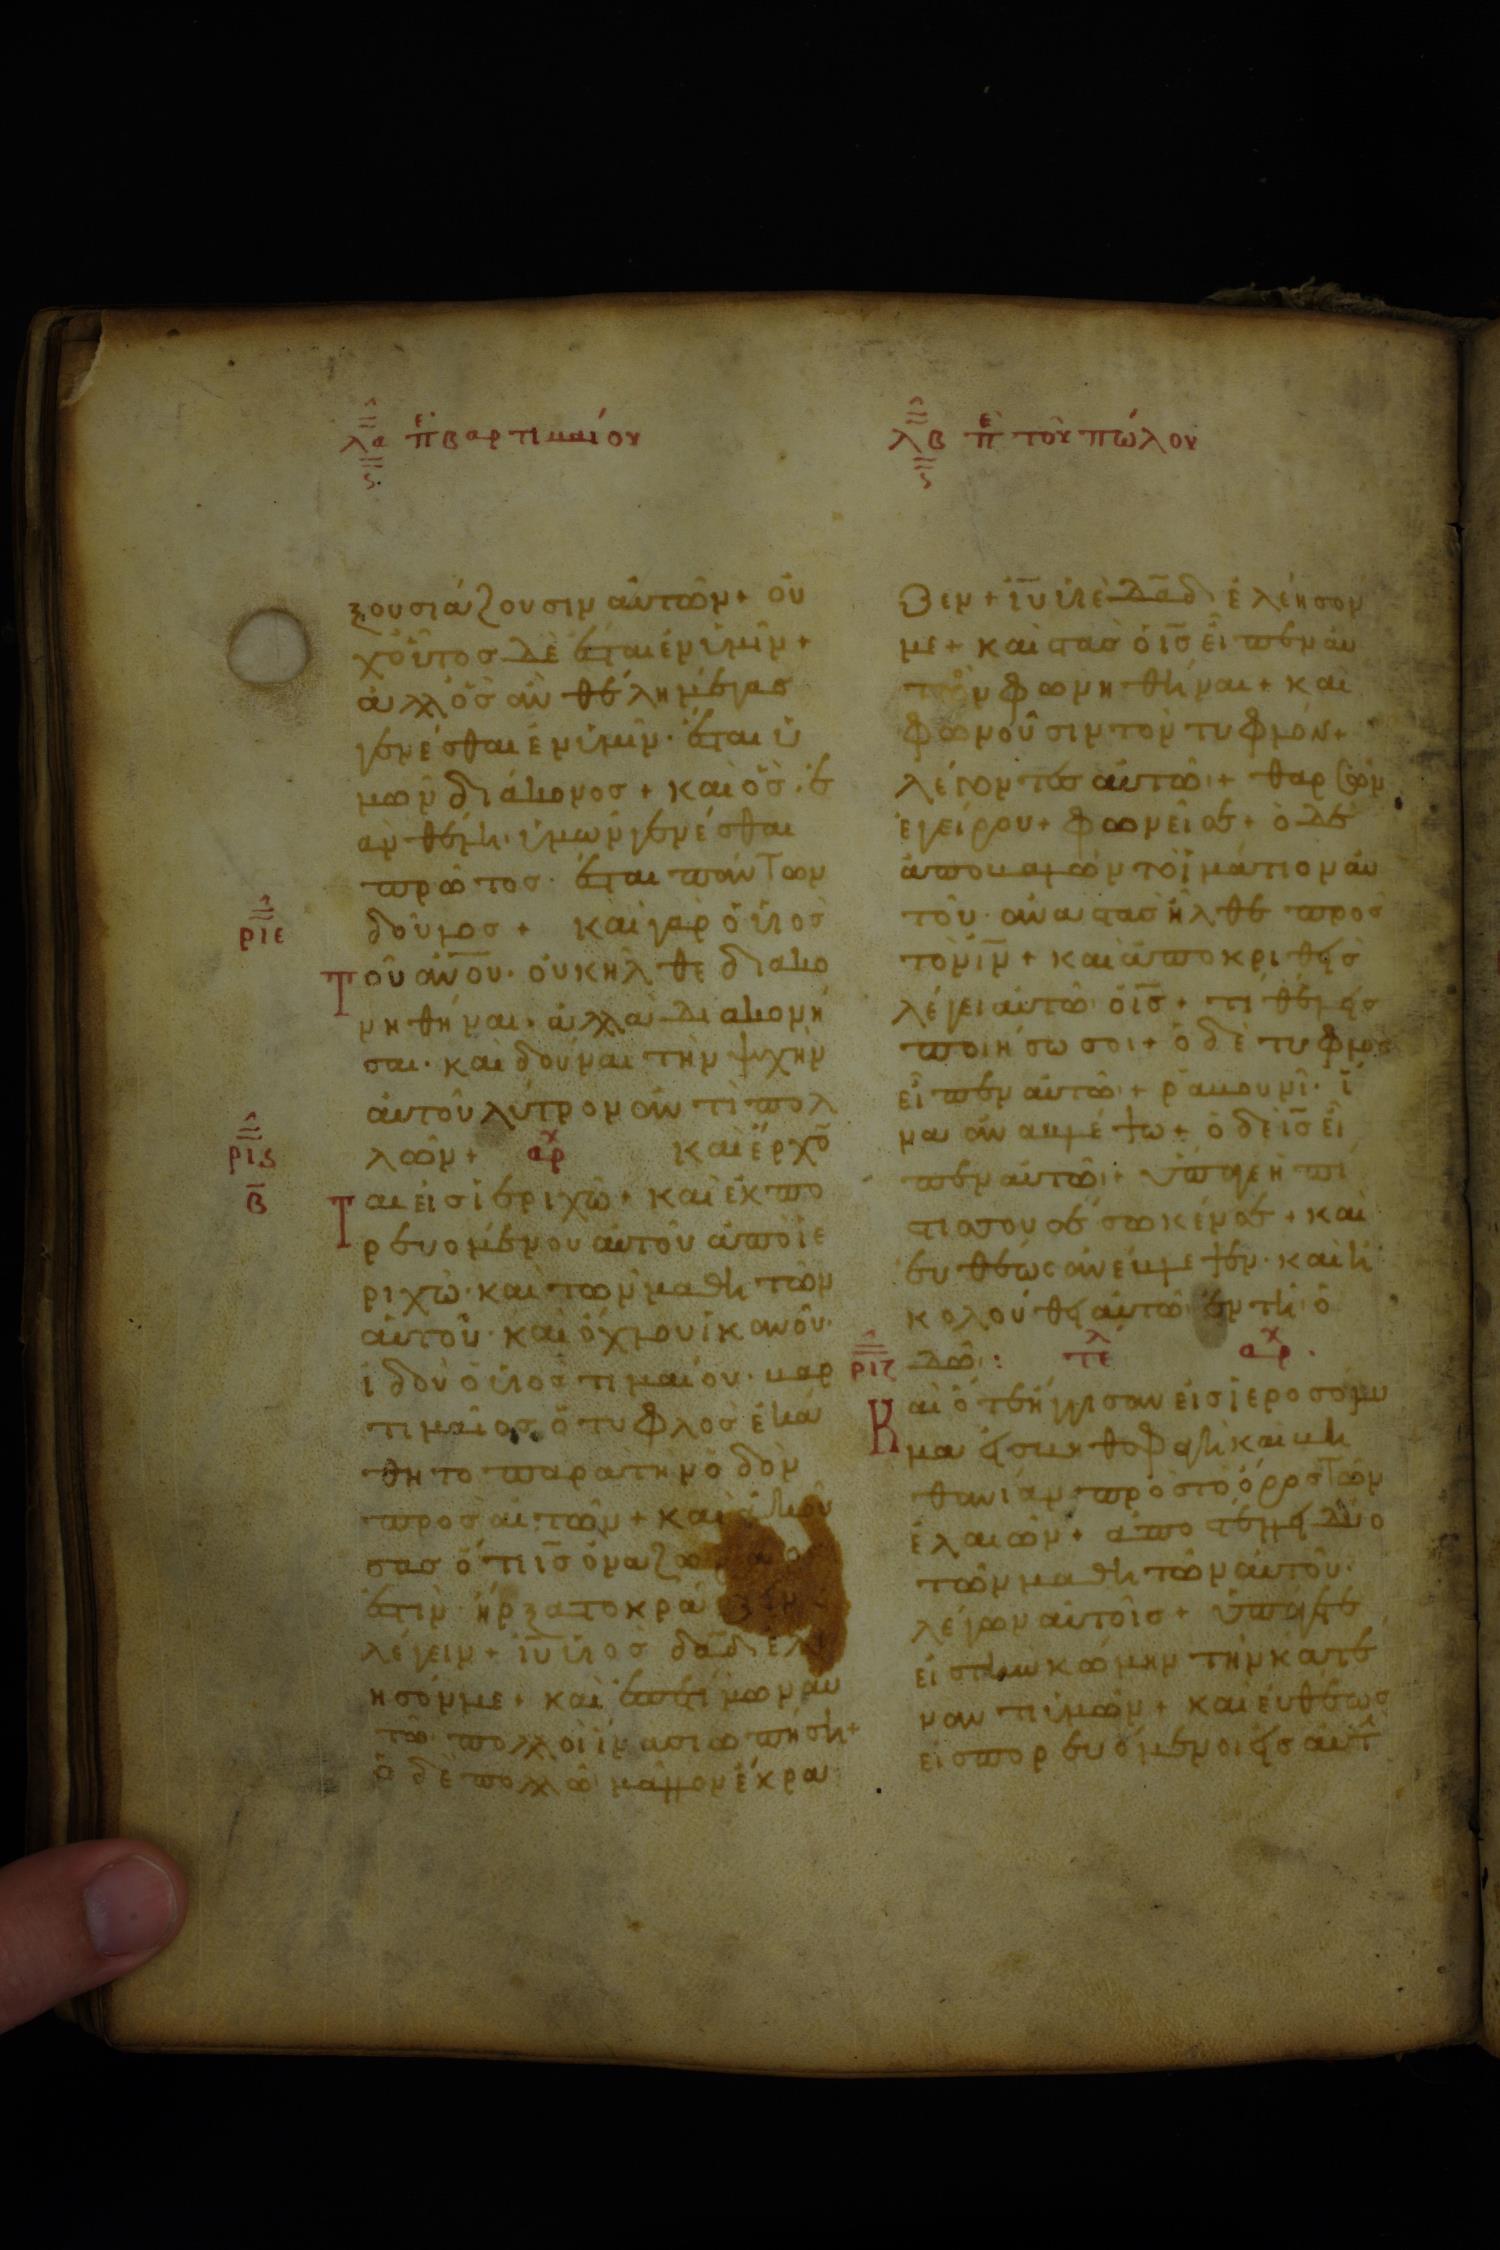 λα πε βαρτιμαίου
ς
ξουσιάζουσιν αὐτῶν + οὐ
χ οὕτος δὲ ἔσται ἐν ὑμῖν +
ἀλλ ὃς ἂν θέλη μέγας
γενέσθαι ἐν ὑμῖν · ἔσται ὑ
μῶν διάκονος + καὶ ὃς ἐ
ὰν θέλη ὑμῶν γενέσθαι
πρῶτος · ἔσται πάντων
δοῦλος + καὶ γὰρ ὁ υἱος
ριε
Τοῦ ανου · οὐκ ηλθε διακο
νηθῆναι · ἀλλὰ διακονῆ
σαι · καὶ δοῦναι τὴν ψυχὴν
αὐτοῦ λύτρον ἀντὶ πολ
λῶν + αρχ καὶ ἔρχο
ρις
β
Ται εἰς ἱεριχὼ + καὶ ἐκπο
ρευομένου αὐτοῦ ἀπὸ ἱε
ριχὼ · καὶ τῶν μαθητῶν
αὐτοῦ · καὶ ὄχλου ἱκανοῦ ·
ἰδοὺ ὁ υἱος τιμαίου · βαρ
τιμαῖος ὁ τυφλος ἐκά
θητο παρα τὴν ὁδὸν
προσαιτῶν + καὶ ἀκού
σας ὅτι ις ὁ ναζωραῖος
ἐστιν · ἤρξατο κράζειν κ
λέγειν + ιυ υἱος δαδ ἐλέ
ησόν με + καὶ ἐπετίμων αὐ
τῶ πολλοὶ ἵνα σιωπήση +
ὁ δὲ πολλῶ μᾶλλον ἔκρα
λβ πε τοῦ πώλου
ς
ζεν + ιυ υἱὲ δαδ ἐλέησον
με + καὶ στας ὁ ις εἶπεν αυ
τὸν φωνηθῆναι + καὶ
φωνοῦσιν τὸν τυφλόν +
λέγοντες αὐτῶ + θαρσῶν
ἐγείρου + φωνεῖ σε + ὁ δὲ
ἀποβαλὼν τὸ ἱμάτιον αὐ
τοῦ · ἀναστας ἦλθε προς
τὸν ιν + καὶ ἀποκριθεὶς
λέγει αὐτῶ ὁ ις + τί θέλεις
ποιήσω σοι + ὁ δὲ τυφλος
εἶπεν αὐτῶ + ραβουνι · ἵ
να ἀναβλέψω + ὁ δὲ ις εἶ
πεν αὐτῶ + ὕπαγε ἡ πί
στις σου σέσωκέν σε + καὶ
εὐθέως ἀνέβλεψεν · καὶ ἠ
κολούθει αὐτῶ ἐν τῆ ὁ
ριζ
δῶ : τελ αρχ ·
Καὶ ὅτε ἤγγισαν εἰς ἱεροσολυ
μα εἰς βηθσφαγῆ καὶ βη
θανίαν πρὸς τὸ ὄρος τῶν
ἐλαιῶν + ἀποστέλλει δύο
τῶν μαθητῶν αὐτοῦ ·
λέγων αὐτοῖς + ὑπάγετε
εἰς τὴν κώμην τὴν κατέ
ναντι ὑμῶν + καὶ εὐθέως
εἰσπορευόμενοι εἰς αὐτ